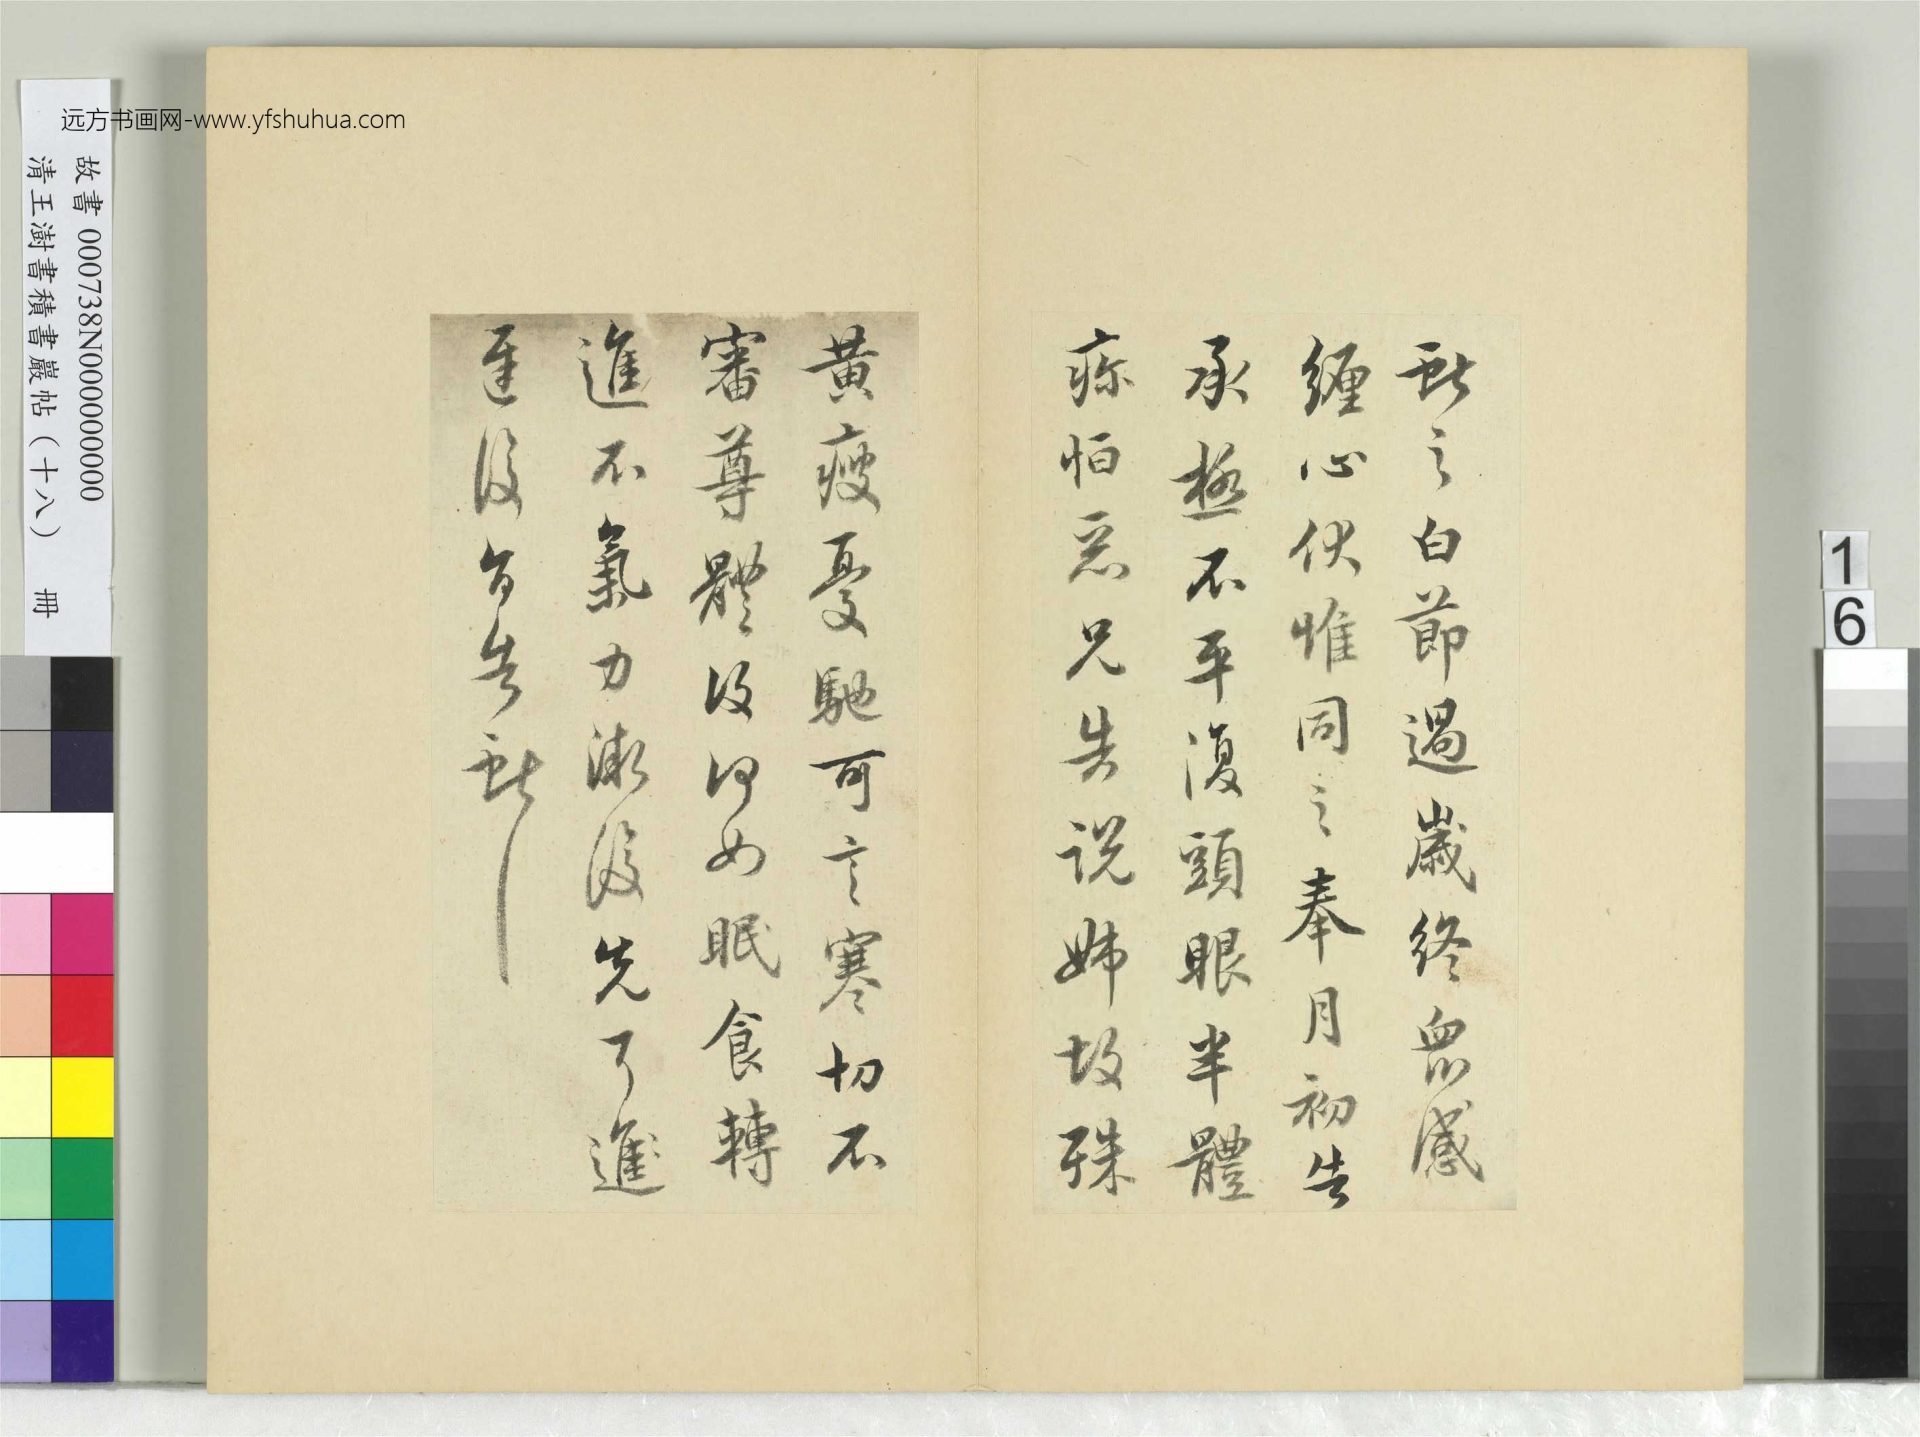 獻之白節過歲終衆感
纏心伏惟同之奉月初告
承極不平復頭眼半體
疼怕惡兄告說姊故殊
黃瘦憂馳可言寒切不
審尊體復何如眠食轉
進不氣力漸復先了進
復旨告獻
远方书画网-www.yfshuhua.com
故書 000738N000000000
清王澍書積書巖帖（十八） 冊
16